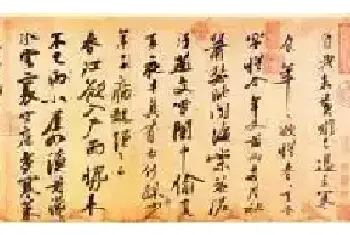 自我來黃州已過三寒
食年年欲惜春春去不
容惜今年又苦雨兩月秋
蕭瑟臥聞海棠花泥
汙燕支雪闇中偷負
去夜半真有力何殊少
年子病起頭已白
春江欲入戶雨勢來
不已雨小屋如漁舟濛濛
水雲裏空庖煮寒菜